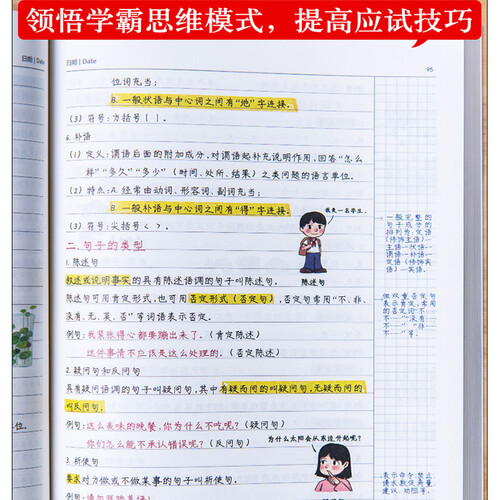 领悟学霸思维模式，提高应试技巧
日期 | Date
95
位词充当；
B. 一般状语与中心词之间有“地”字连接。
（3）符号：方括号［ ］
6. 补语
（1）定义：谓语后面的附加成分，对谓语起补充说明作用，回答“怎么
样”“多久”“多少”（时间、处所、结果）之类问题的语言单位。
（2）特点：A. 经常由动词、形容词、副词充当；
B. 一般补语与中心词之间有“得”字连接。
（3）符号：尖括号〈 〉
我是一名学生。
二. 句子的类型
1. 陈述句
陈述句
叙述或说明事实的具有陈述语调的句子叫陈述句。
陈述句可用肯定形式，也可用否定形式（否定句），否定句常用“不、非、
没有、无、莫、否”等词语表示否定。
例句：我紧张得心都要蹦出来了。（肯定陈述）
这件事情不应该是这么处理的。（否定陈述）
2. 疑问句和反问句
具有疑问语调的句子叫疑问句，其中有疑而问的叫疑问句，无疑而问的
叫反问句。
例句：这么美味的晚餐，你为什么不吃呢？（疑问句）
你们怎么能不承认错误呢？（反问句）
为什么太阳会从东边升起呢？
3. 祈使句
要求对方做或不做某事的句子叫祈使句。
一般完整的
句子成分的
排列为：定语
（修饰主语）—
主语—状语—
谓语—补语—
定语（修饰宾
语）—宾语。
但双重否定句
表示肯定，常用
的否定词“不…
不…”“没有…
不…”“非…
不…”等。
表示命令、禁止